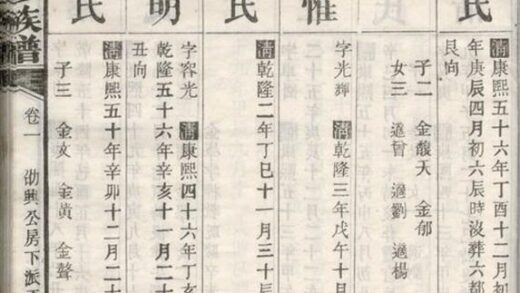 氏
清康熙五十六年丁酉十二月初
年庚辰四月初六辰時沒葬六都
艮向
子二 金馥天 金郁
女三 適曾 適劉 適楊
惟
字光輝 清乾隆三年戊午十月
氏
清乾隆二年丁巳十一月三十辰
明
字容光 清康熙四十六年丁亥
乾隆五十六年辛亥十一月二十
丑向
氏
清康熙五十年辛卯十二月二十
子三 金女 金黃 金聲
族譜 卷一 劭興公房下派